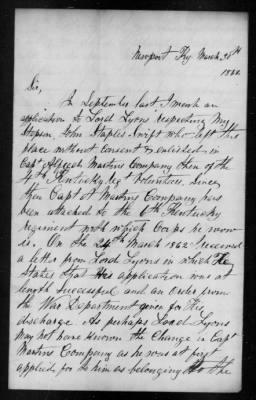 Newport Ky March 28th
1862
Sir,
In September last I made an
application to Lord Lyons respecting my
Stepson, John Staples Swift who left this
place without consent & enlisted in
Capt Martins Company then of the
4th Kentucky Regt Volunteers, Since
then Capt A Martins Company has
been attached to the 6th Kentucky
regiment with which Corps he now
is. On the 24th March 1862 I received
a letter from Lord Lyons in which He
States that His application was at
length Successful and an order from
the War Department given for His
discharge. As perhaps Lord Lyons
may not have known the Change in Capt
Martins Company as he was at first
applied for to him as belonging to the